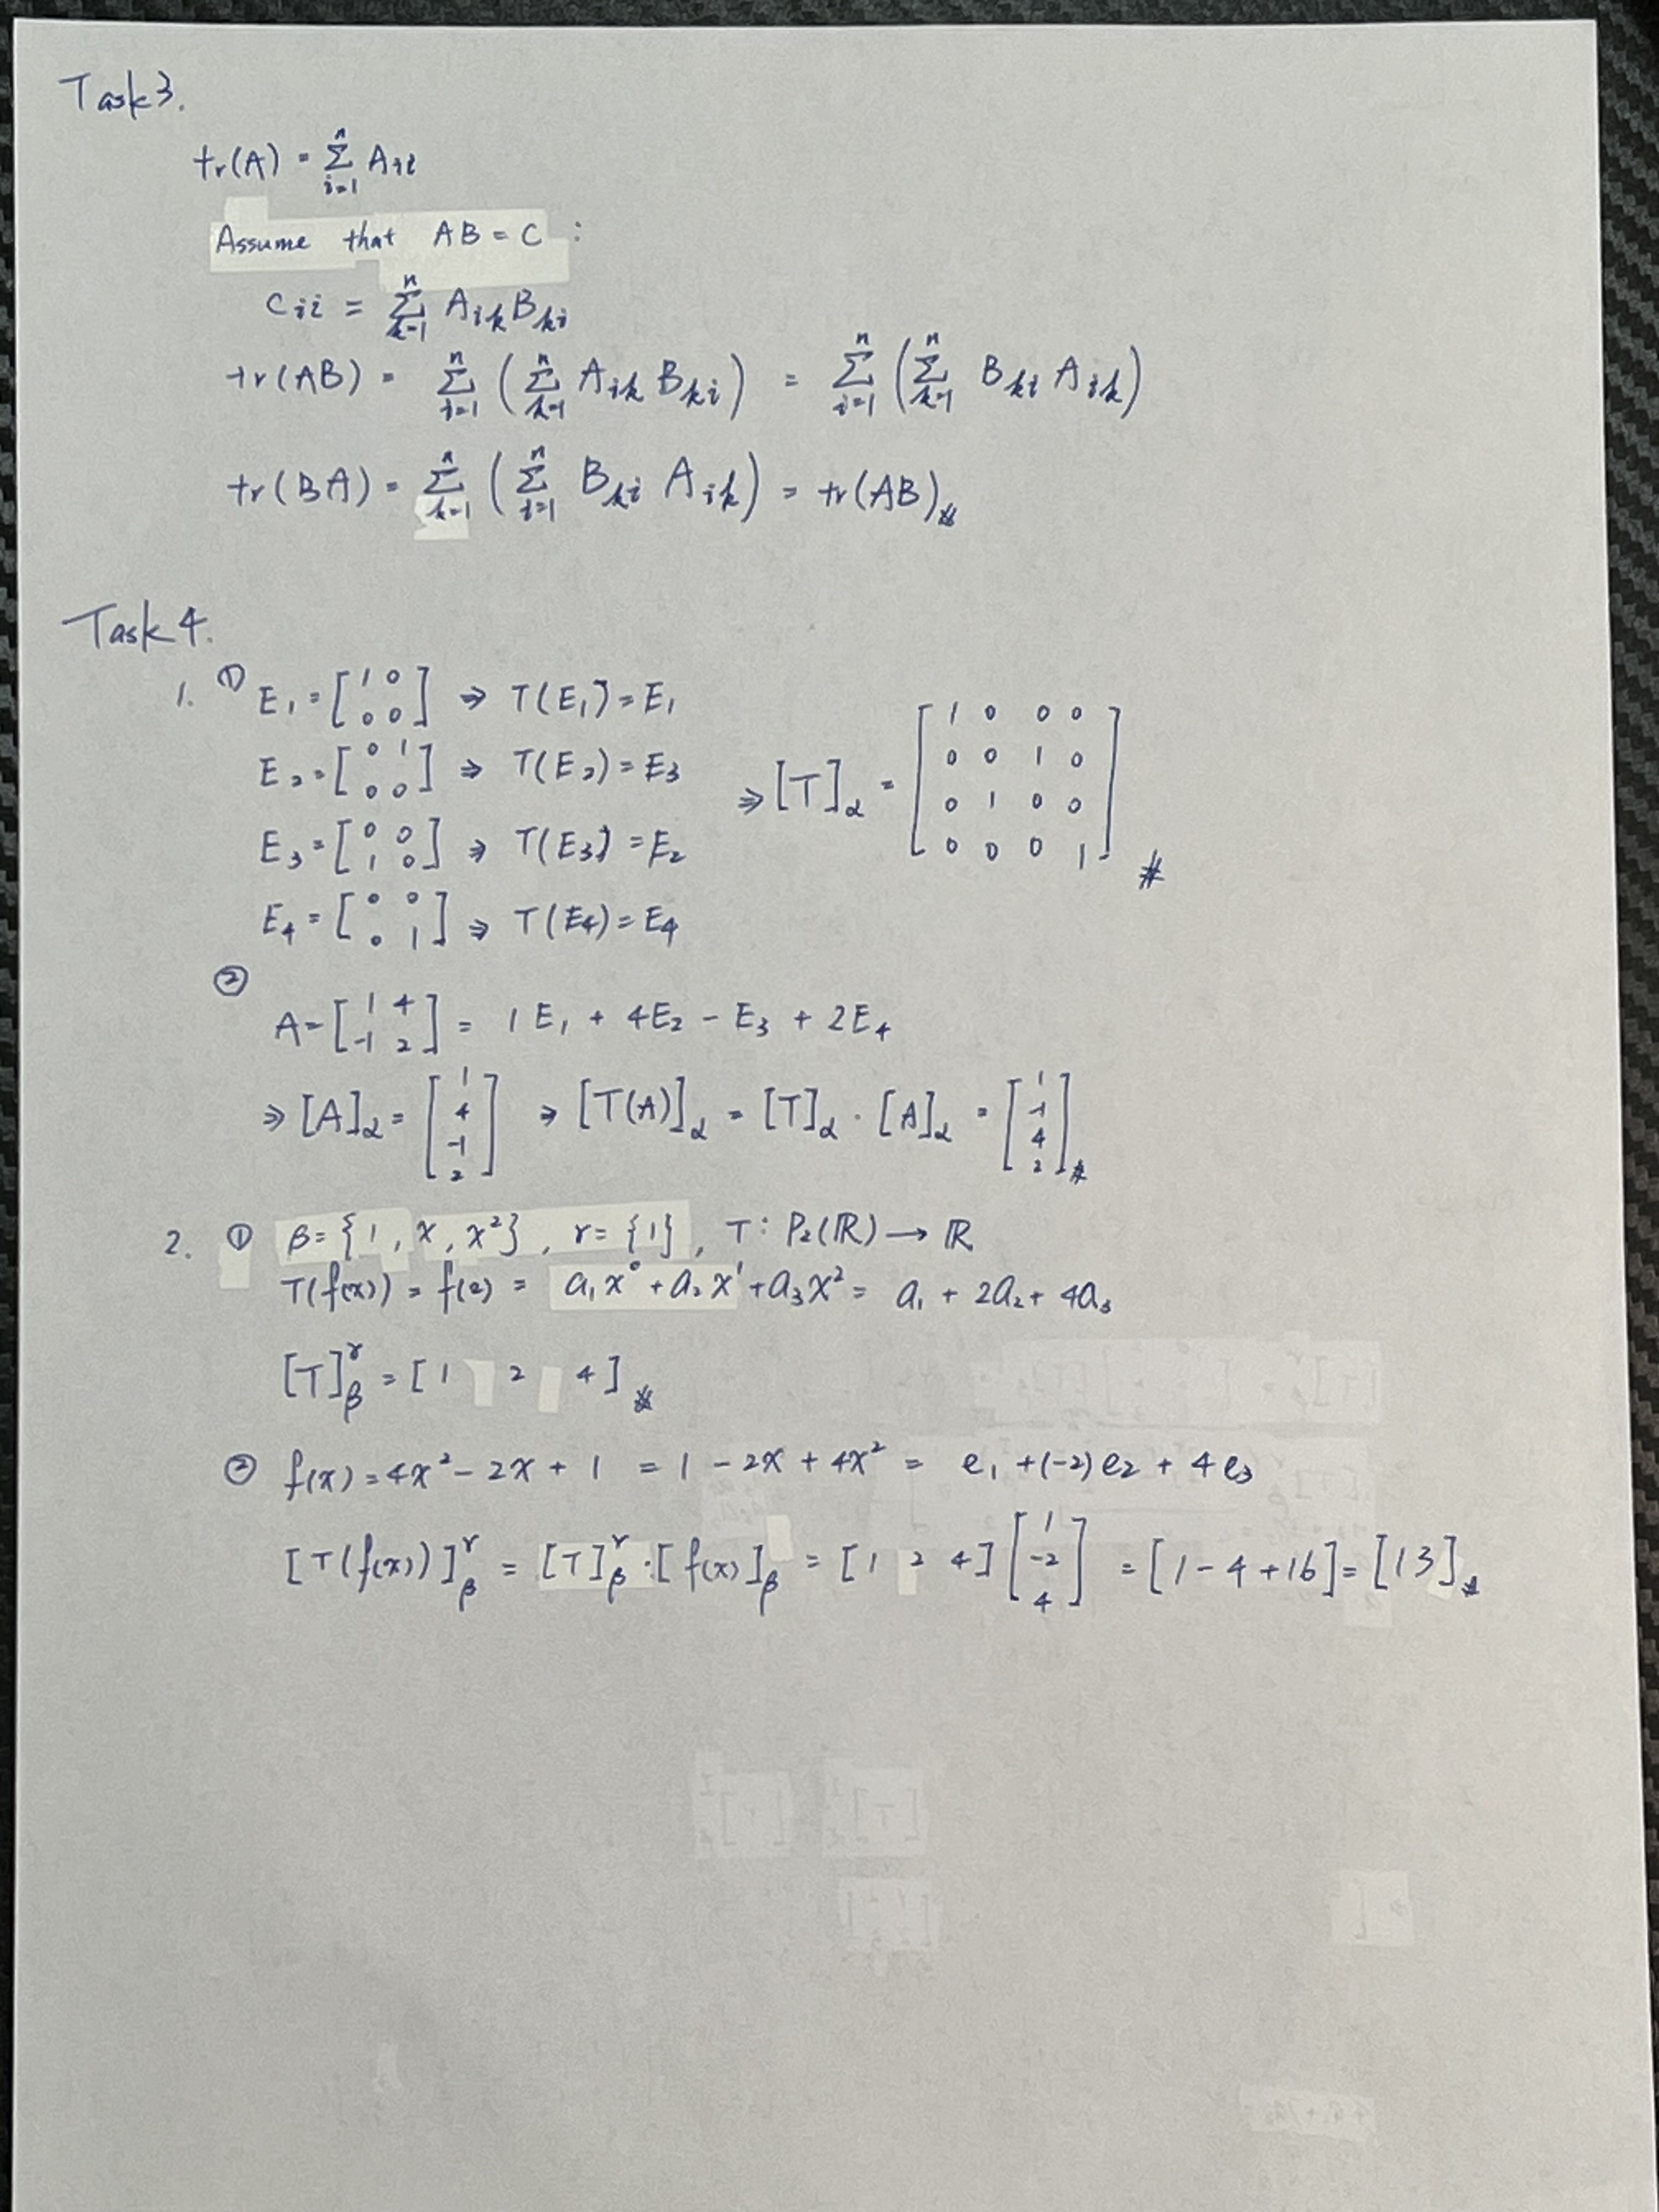 Task3.
tr(A) = Σ_{i=1}^{n} A_{ii}
Assume that AB = C :
C_{ii} = Σ_{k=1}^{n} A_{ik} B_{ki}
tr(AB) = Σ_{i=1}^{n} (Σ_{k=1}^{n} A_{ik} B_{ki}) = Σ_{i=1}^{n} (Σ_{k=1}^{n} B_{ki} A_{ik})
tr(BA) = Σ_{k=1}^{n} (Σ_{i=1}^{n} B_{ki} A_{ik}) = tr(AB) #
Task 4.
1. ① E₁ = [1 0; 0 0] ⇒ T(E₁) = E₁
E₂ = [0 1; 0 0] ⇒ T(E₂) = E₃
E₃ = [0 0; 1 0] ⇒ T(E₃) = E₂
E₄ = [0 0; 0 1] ⇒ T(E₄) = E₄
⇒ [T]_α = [1 0 0 0; 0 0 1 0; 0 1 0 0; 0 0 0 1] #
②
A = [1 4; -1 2] = 1E₁ + 4E₂ - E₃ + 2E₄
⇒ [A]_α = [1; 4; -1; 2] ⇒ [T(A)]_α = [T]_α · [A]_α = [1; -1; 4; 2] #
2. ① β = {1, x, x²}, γ = {1}, T : P₂(ℝ) → ℝ
T(f(x)) = f(2) = a₁x⁰ + a₂x¹ + a₃x² = a₁ + 2a₂ + 4a₃
[T]_β^γ = [1 2 4] #
② f(x) = 4x² - 2x + 1 = 1 - 2x + 4x² = e₁ + (-2)e₂ + 4e₃
[T(f(x))]_β^γ = [T]_β^γ · [f(x)]_β = [1 2 4] [1; -2; 4] = [1 - 4 + 16] = [13] #